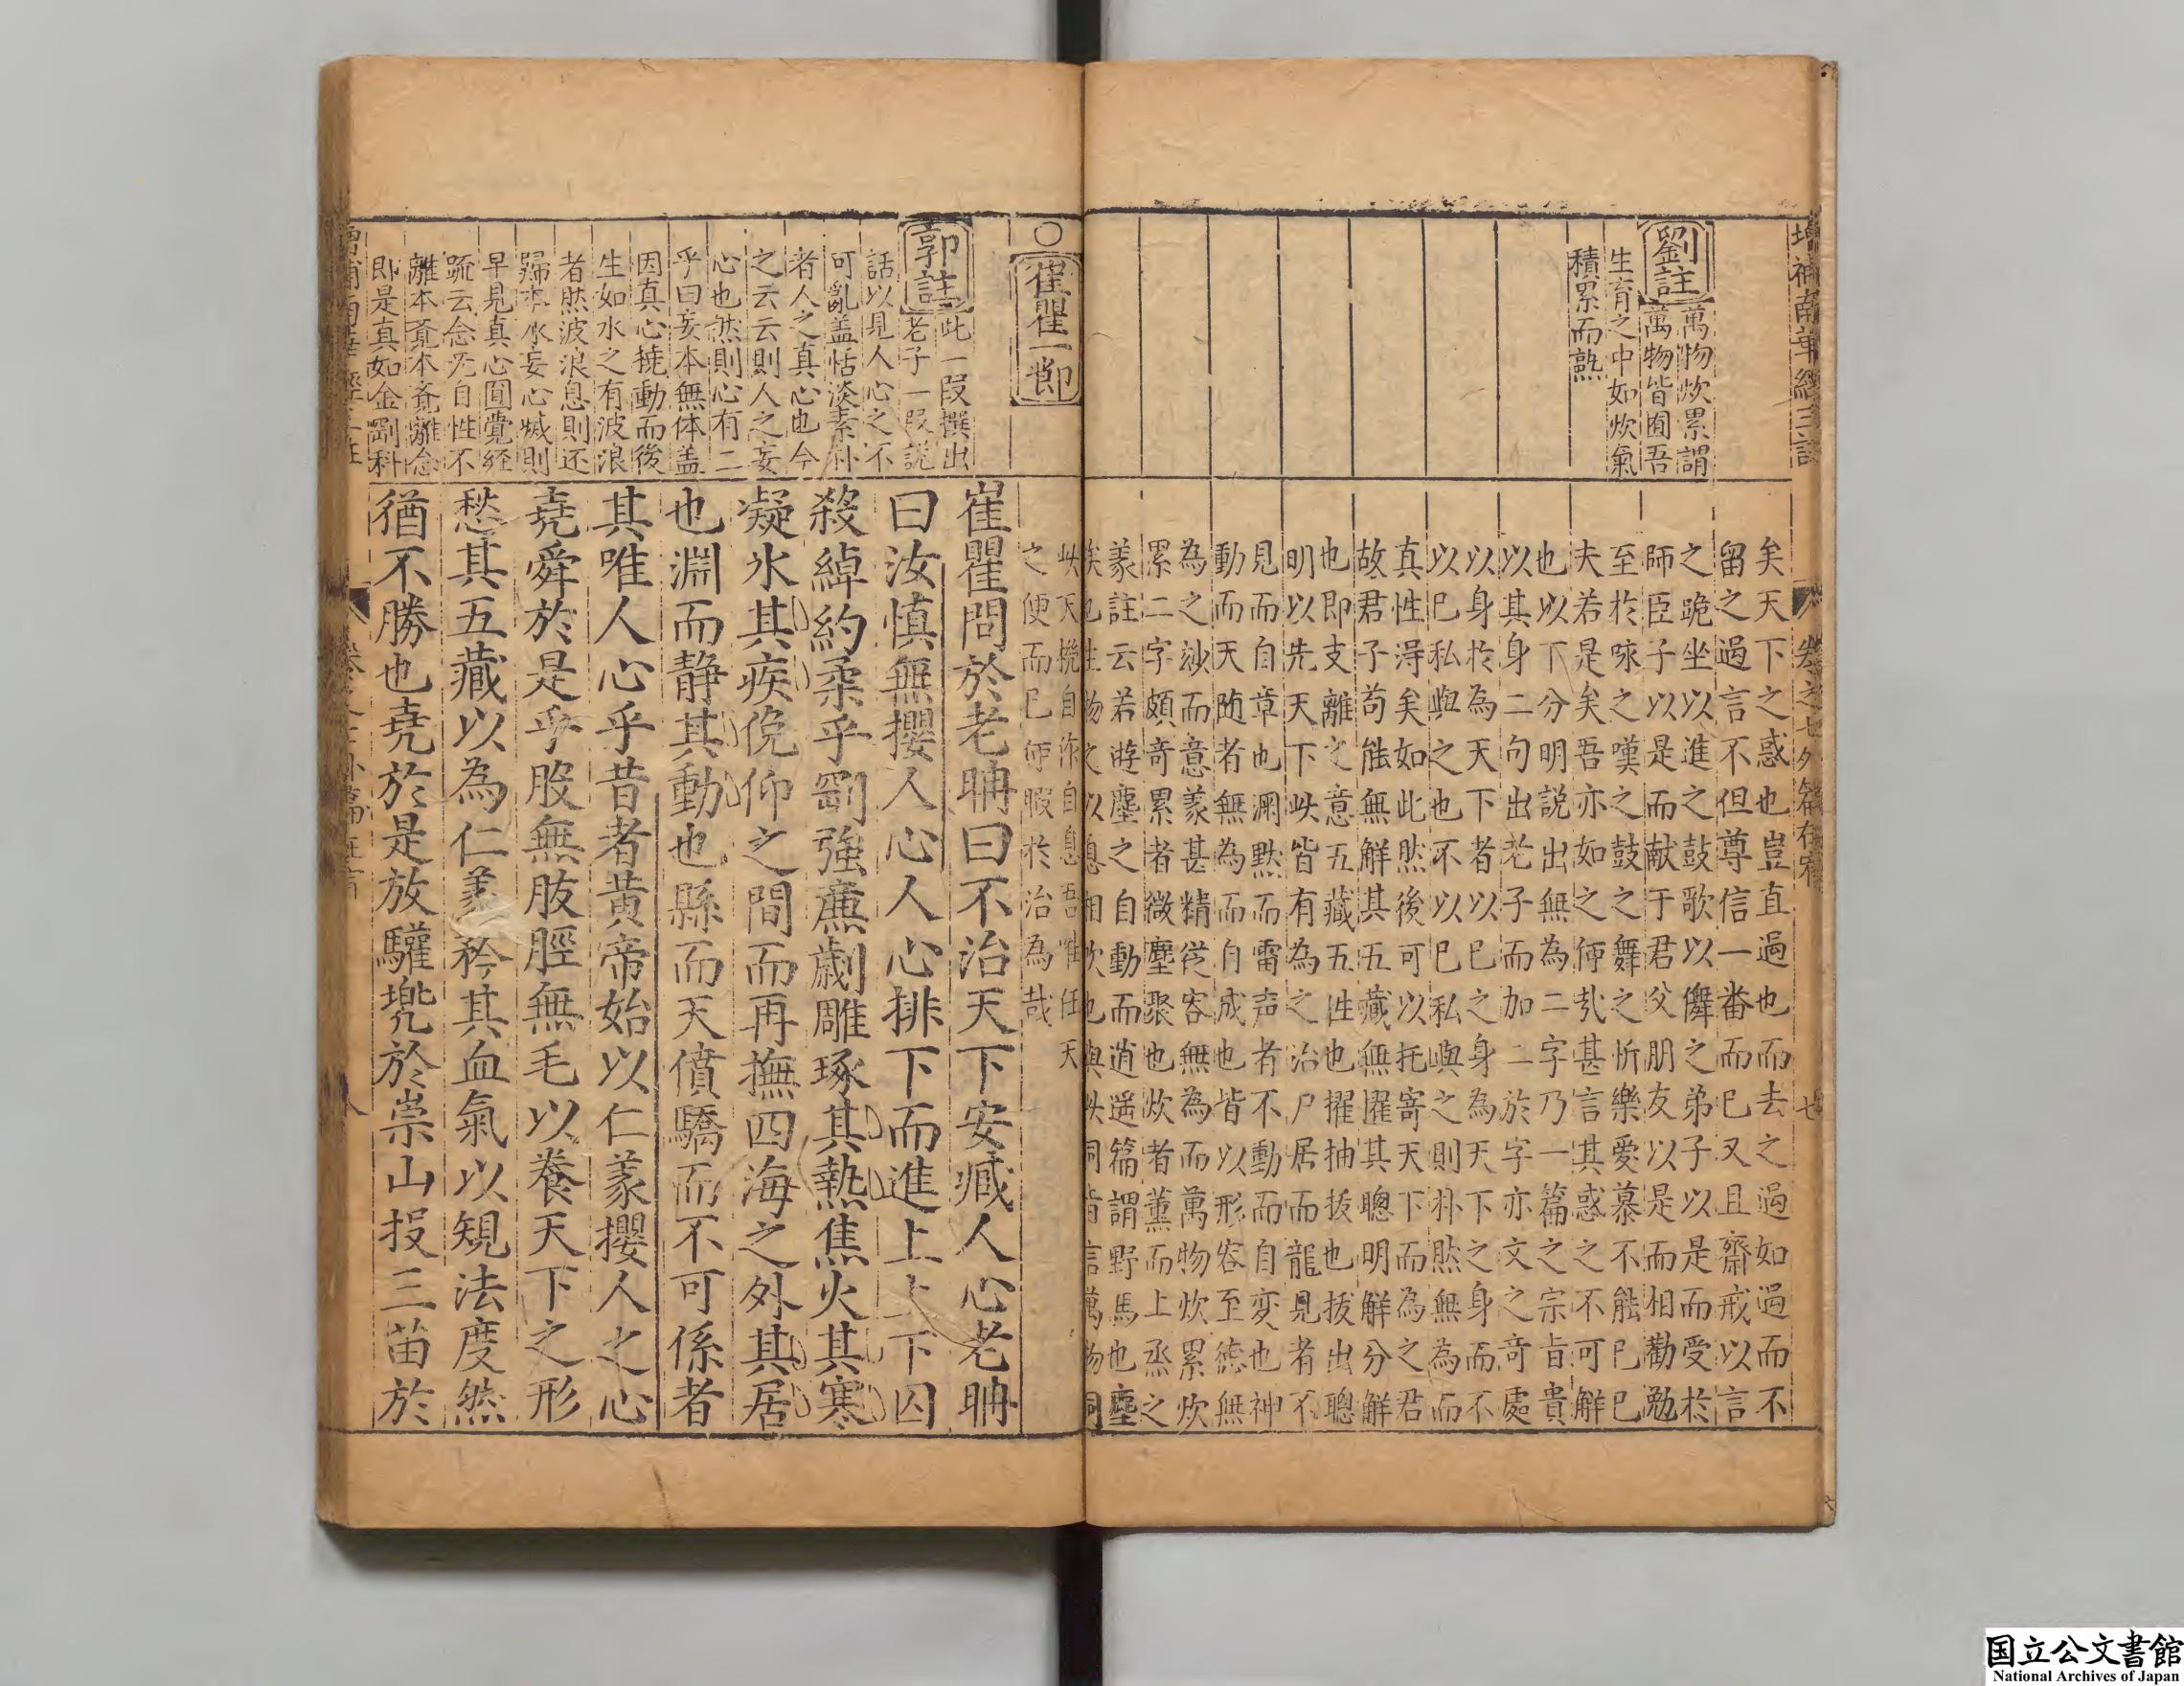 增補南華經三註
卷之七外篇在宥
七
劉註
萬物炊累謂
萬物皆囿吾
生育之中如炊氣
積累而熟
矣天下之惑也豈直過也而去之過如過而不
留之過言不但尊信一番而已又且齋戒以言
之跪坐以進之鼓歌以儛之弟子以是而受於
師臣子以是而献于君父朋友以是而相勸勉
至於咏之嘆之鼓之舞之忻樂愛慕不能已已
夫若是矣吾亦如之何哉甚言其惑之不可解
也以下分明說出無為二字乃一篇之宗旨貴
以其身二句出老子而加二於字亦文之奇處
以身於為天下者以已之身為天下之身而不
以已私與之也不以已私與之則朴然無為而
真性得矣如此然後可以托寄天下而為之君
故君子苟能無解其五藏無擢其聰明解分解
也即支離之意五藏五性也擢抽拔也拔出聰
明以先天下此皆有為之治尸居而龍見者不
見而自章也淵默而雷声者不動而自变也神
動而天随者無為而自成也皆以形容至德無
為之妙而意義甚精從容無為而萬物炊累炊
累二字頗奇累者微塵聚也炊者薰而上烝之
義註云若遊塵之自動而逍遥篇謂野馬也塵
埃也生物之以息相吹也與此同皆言萬物同
此天機自作自息吾惟任天
之便而已何暇於治為哉
○崔瞿一節
郭註
此一叚撰出
老子一叚說
話以見人心之不
可亂盖恬淡素朴
者人之真心也今
之云云則人之妄
心也然則心有二
乎曰妄本無体盖
因真心摇動而後
生如水之有波浪
者然波浪息則还
歸本水妄心滅則
早見真心圓覺経
疏云念无自性不
離本覔本覔離念
即是真如金剛科
崔瞿問於老聃曰不治天下安臧人心老聃
曰汝慎無攖人心人心排下而進上上下囚
殺綽約柔乎剛強亷劌雕琢其熱焦火其寒
凝氷其疾俛仰之間而再撫四海之外其居
也淵而静其動也縣而天僨驕而不可係者
其唯人心乎昔者黄帝始以仁義攖人之心
堯舜於是乎股無胈脛無毛以養天下之形
愁其五藏以為仁義矜其血氣以規法度然
猶不勝也堯於是放驩兜於崇山投三苗於
八
国立公文書館
National Archives of Japan